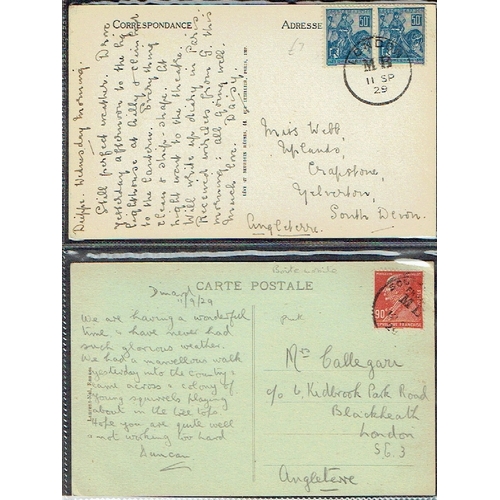 CORRESPONDANCE
ADRESSE
50
50
LONDON
M B
11 SP
29
Dieppe. Wednesday morning.
Still perfect weather. Drove
yesterday afternoon to the big
lighthouse at Ailly & climbed
to the lantern. Everything
clean & ship-shape. At
night went to the theatre.
Will write up diary in Paris.
Received wireless from G. this
morning: all going well.
Much love. Daisy.
Miss Webb,
Uplands,
Crapstone,
Yelverton,
South Devon.
Angleterre.
CARTE POSTALE
Boite mobile
90
M.L
Dinard
11/9/29
We are having a wonderful
time & have never had
such glorious weather.
We had a marvellous walk
yesterday into the country &
came across a colony of
young squirrels playing
about in the tree tops.
Hope you are quite well
& not working too hard
Duncan
Callegari
c/o 6. Kidbrook Park Road
Blackheath
London
S.E.3
Angleterre